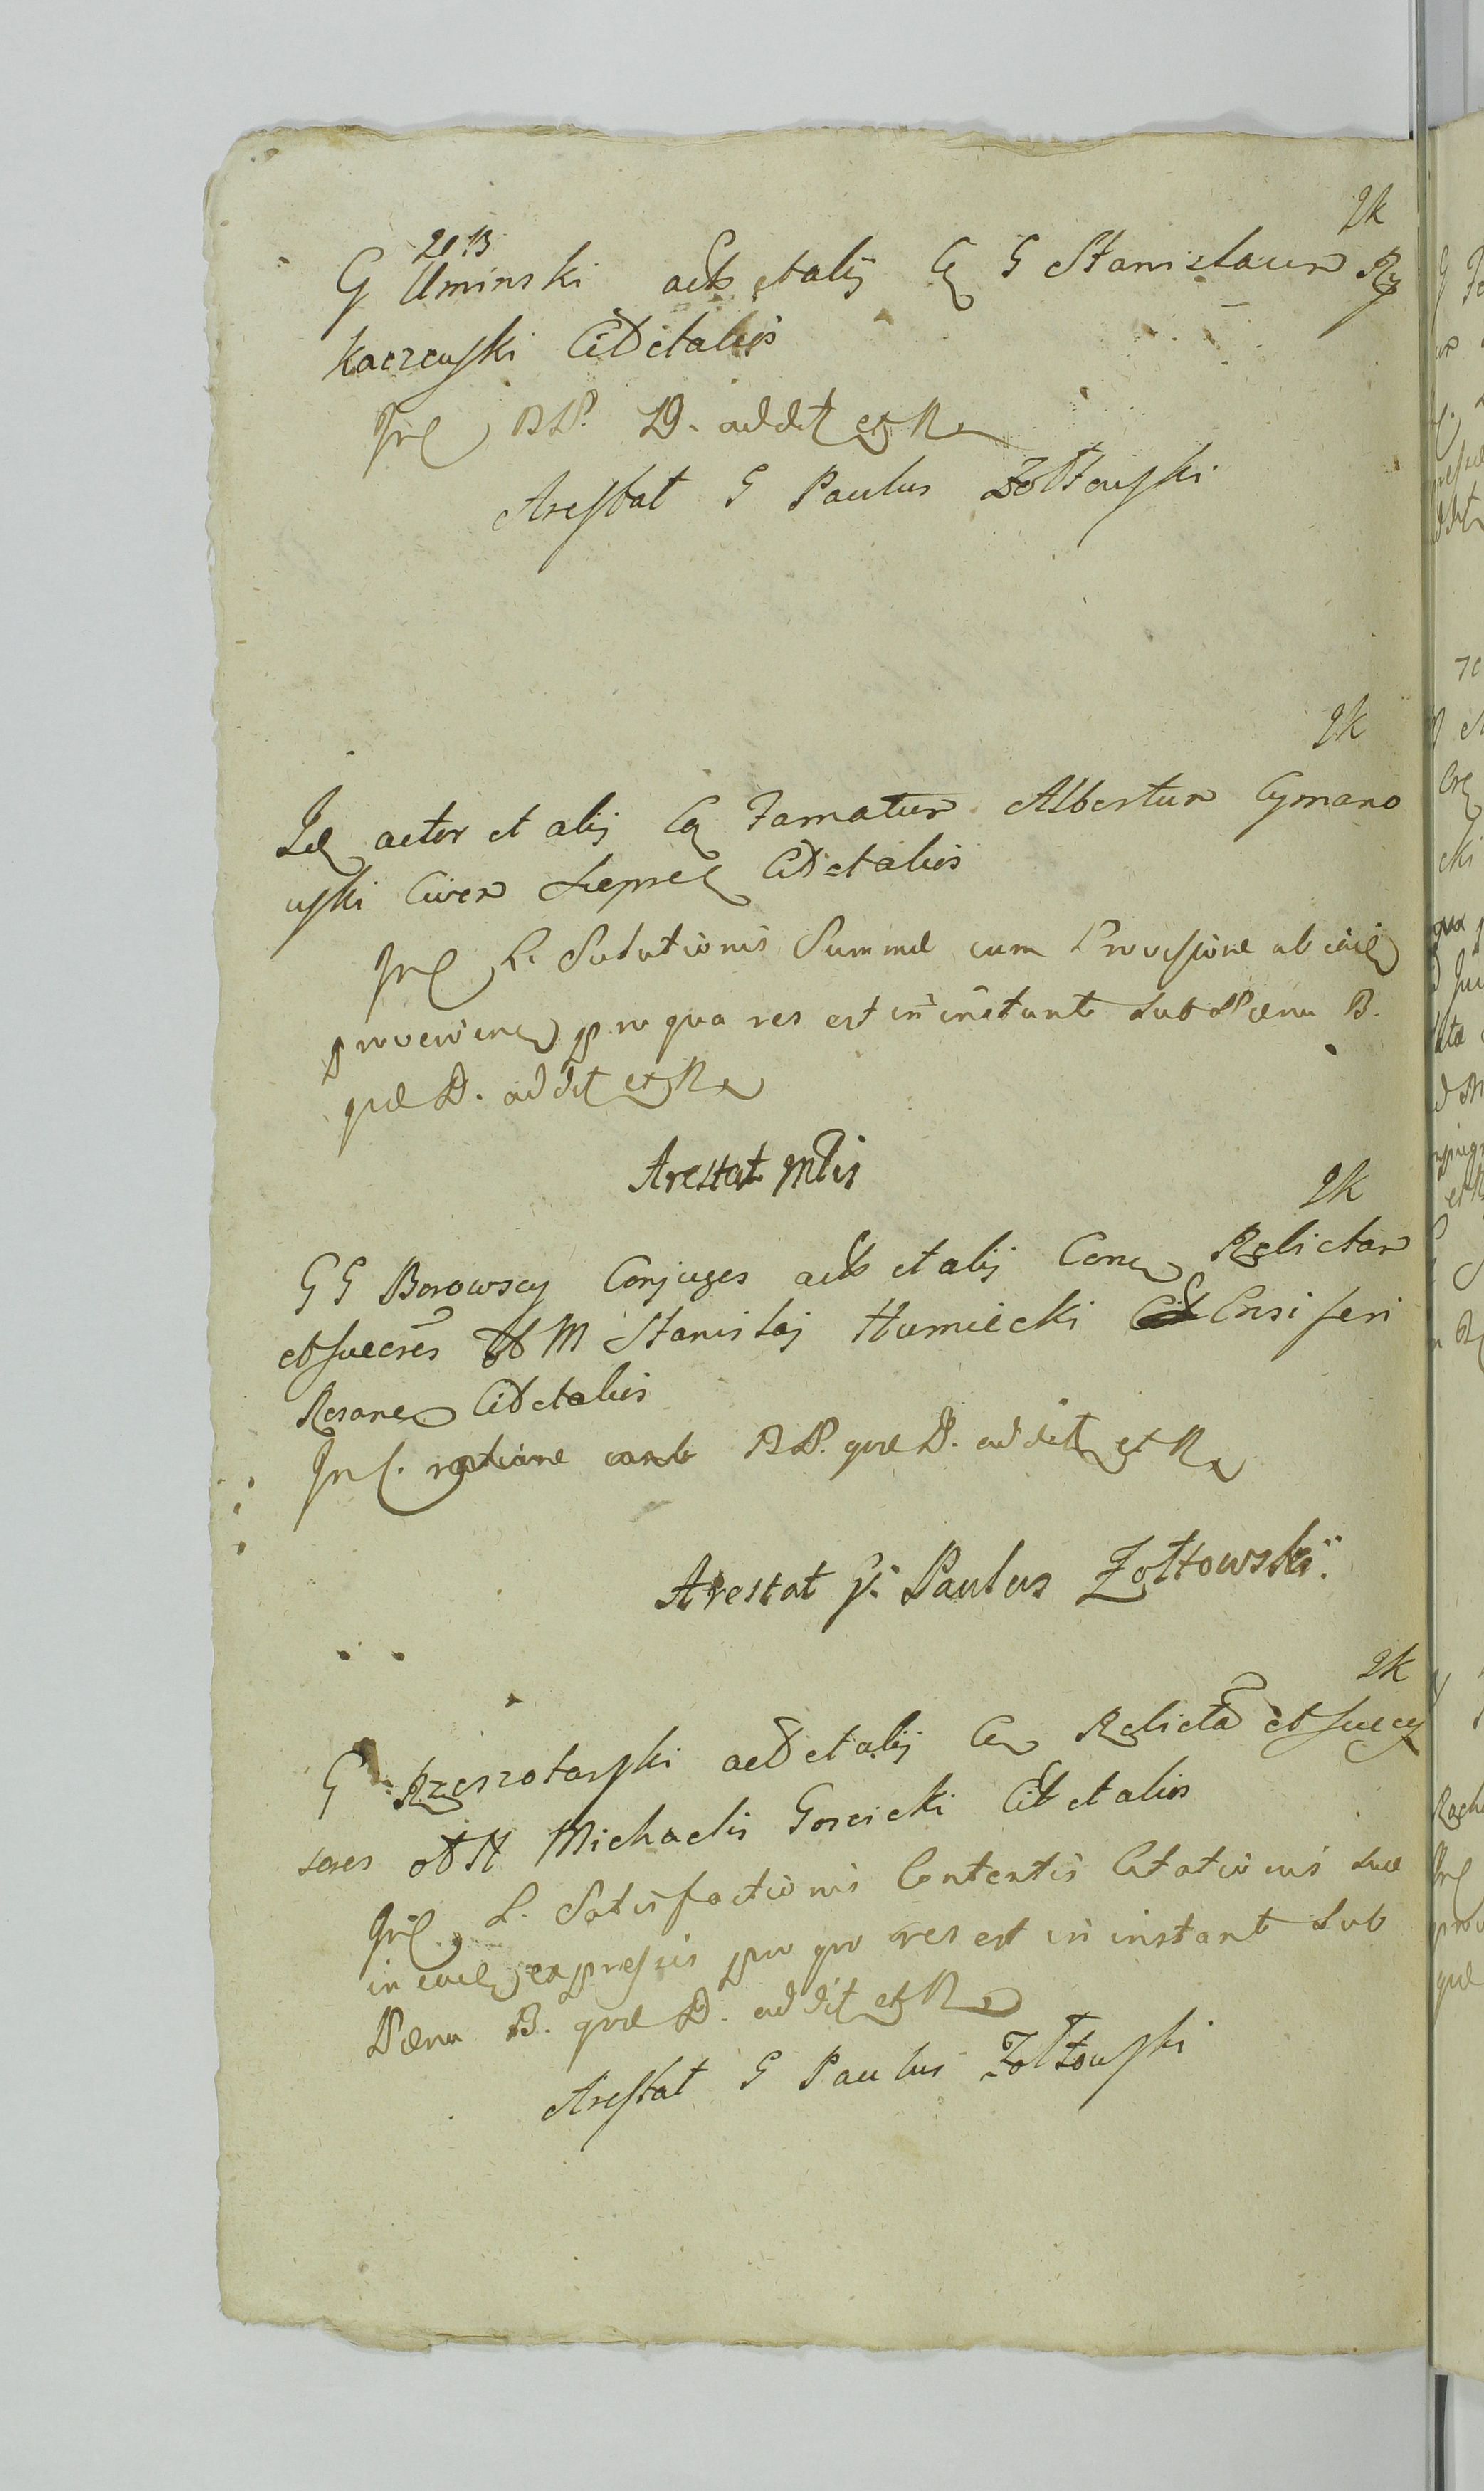 2k
20 B
G Uminski actor et alij C G Stanislaum Ry
kaczewski Citt et alios
Inl BP. D. addit et R
Arestat G Paulus Zołtowski
2k
Id actor et alij C Famatum Albertum Cymano
wski Civem Sieprc Citt et alios
Inl L. Solutionis Summæ cum Provisione ab eâd
provenien pro qua res est in instanti sub Pæna B.
quæ D. addit et R
Arestat Mtis
2k
G G Borowscy Conjuges actor et alij Con Relictam
et succres ol M Stanislaj Humiecki Ensiferi
Rozane Citt et alios
Inl. ratione cont BP. quæ D. addit et R
Arestat G. Paulus Zołtowski.
2k
G Rzeszotarski act et alij C Relictã et succes
sores ol M Michaelis Goscicki Citt et alios
Inl L. Satisfactionis Contentis Citationis suæ
in eâd expressis pro quo res est in instanti sub
Pæna B. quæ D. addit et R
Arestat G Paulus Zołtowski